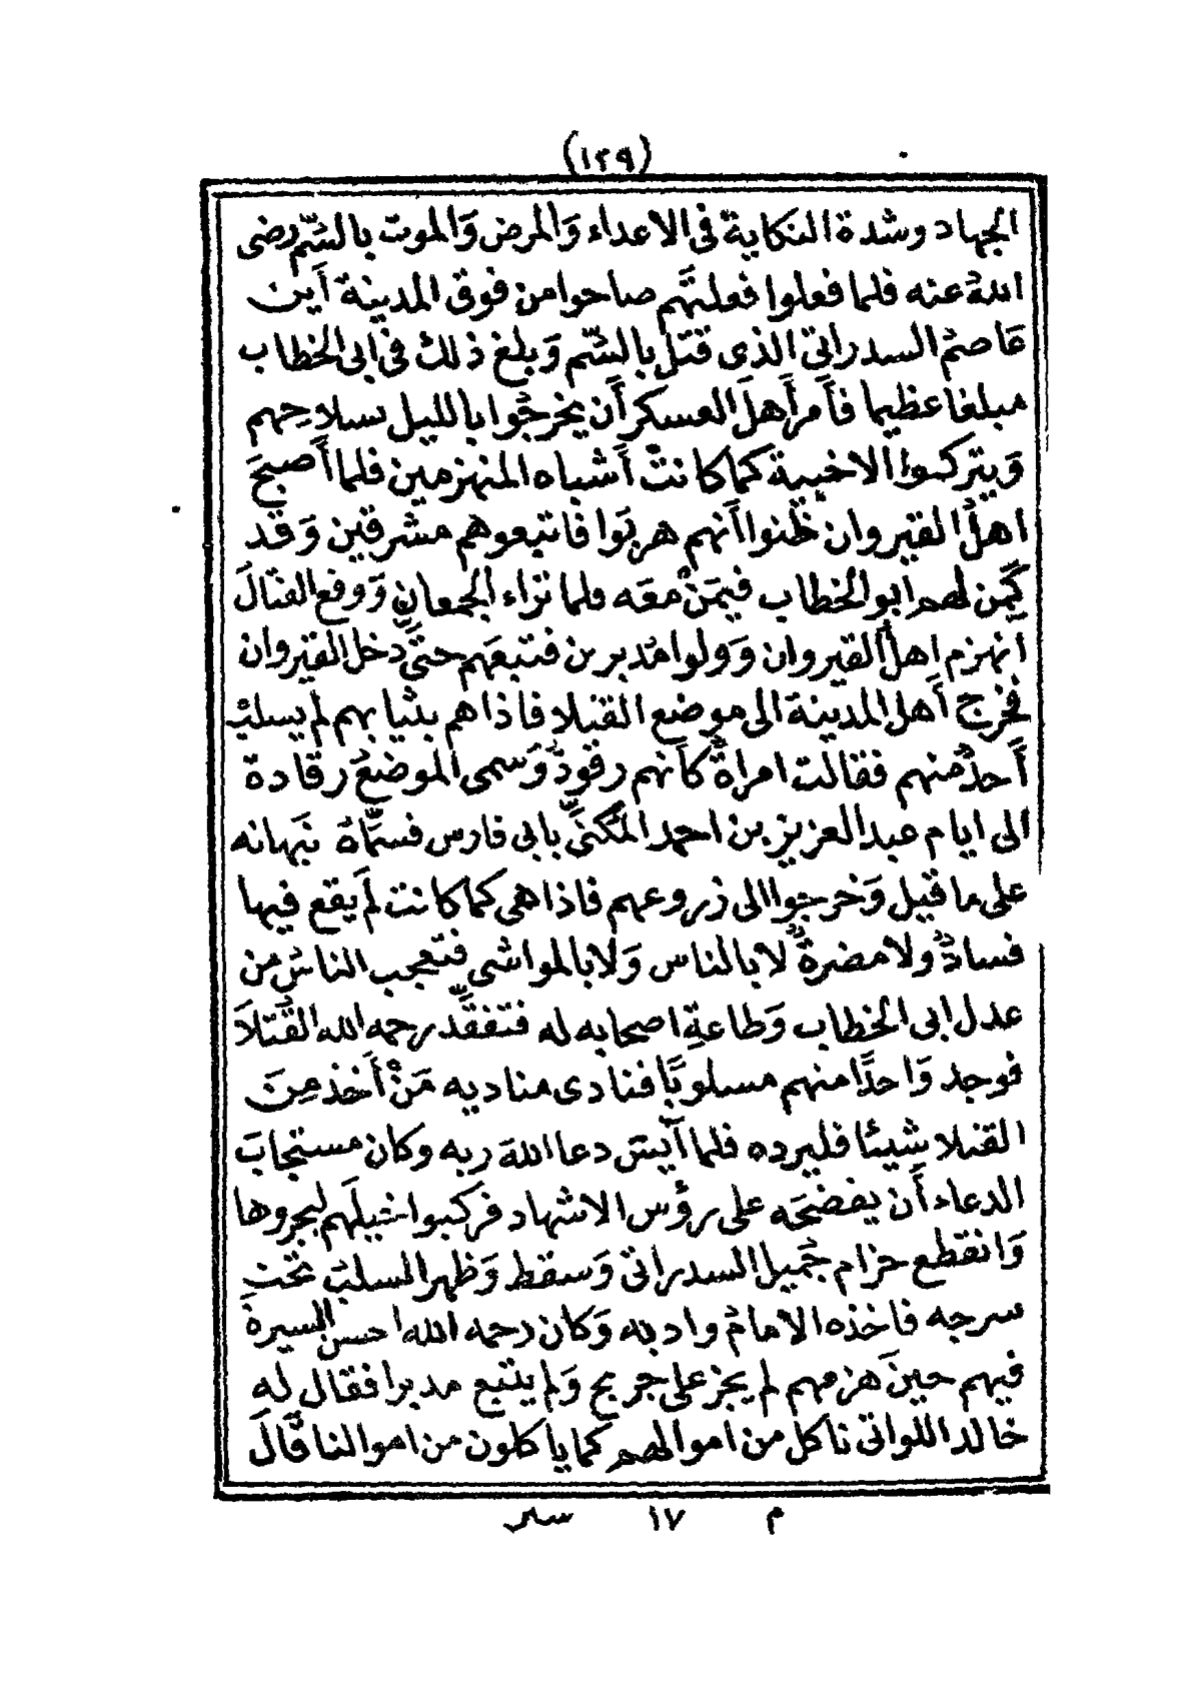 (١٢٩)
الجهاد وشدة النكاية فى الاعداء وَالمرض وَالموت بالسّم رضى
اللهُ عنه فلما فعلوا فعلتَهم صاحوا من فوق المدينة أين
عَاصمُ السدراتىّ الذى قتل بالسّم وَبلغ ذلك فى ابى الخطاب
مبلغا عظيما فأَمر أَهلَ العسكر أَن يخرجُوا بالليل بسلاحهم
وَيتركوا الاخبية كما كانتْ أَشباه المنهزمين فلما أَصبحَ
اهلُ القيروان ظنوا أنهم هربَوا فاتبعوهم مشرقين وَقد
كَمَن لهم ابو الخطاب فيمَنْ معَه فلما تراء الجمعان وَوقع القتالَ
انهزم اهلُ القيروان وَولوا مُدبرين فتبعَهم حتىَّ دخل القيروان
فخرج أَهل المدينة الى موضع القتلا فاذا هم بثيابهم لم يسلب
أَحدٌ منهم فقالت امراةٌ كأنهم رقودٌ وَسمى الموضعُ رقادة
الى ايام عبد العزيز بن احمد المكنىَّ بابى فارس فسمَّاهُ نبَهانه
على ما قيل وَخرجوا الى زروعهم فاذا هى كما كانت لَم يقع فيها
فسادٌ ولا مضرةٌ لا بالناس وَلا بالمواشى فتعجب الناسُ من
عدل ابى الخطاب وَطاعةِ اصحابه له فتفقَّد رحمه الله القُتلاَ
فوجد وَاحدًا منهم مسلوبًا فنادى مناديه مَنْ أَخذ مِنَ
القتلا شيئا فليرده فلما آيس دعا اللهَ ربه وكان مستجابَ
الدعاء أَن يفضحَه على رؤس الاشهاد فركَبوا خيلَهم ليجروها
وَانقطع حزام جُميل السدراتى وَسقط وَظهر السلبُ تحت
سرجه فاخذه الامامُ وادبه وَكان رحمه الله احسن السيرة
فيهم حينَ هزمهم لم يجز على جريح وَلم يتبع مدبرا فقال له
خالد اللواتى ناكل من اموالهم كما ياكلون من اموالنا قالَ
م ١٧ سير